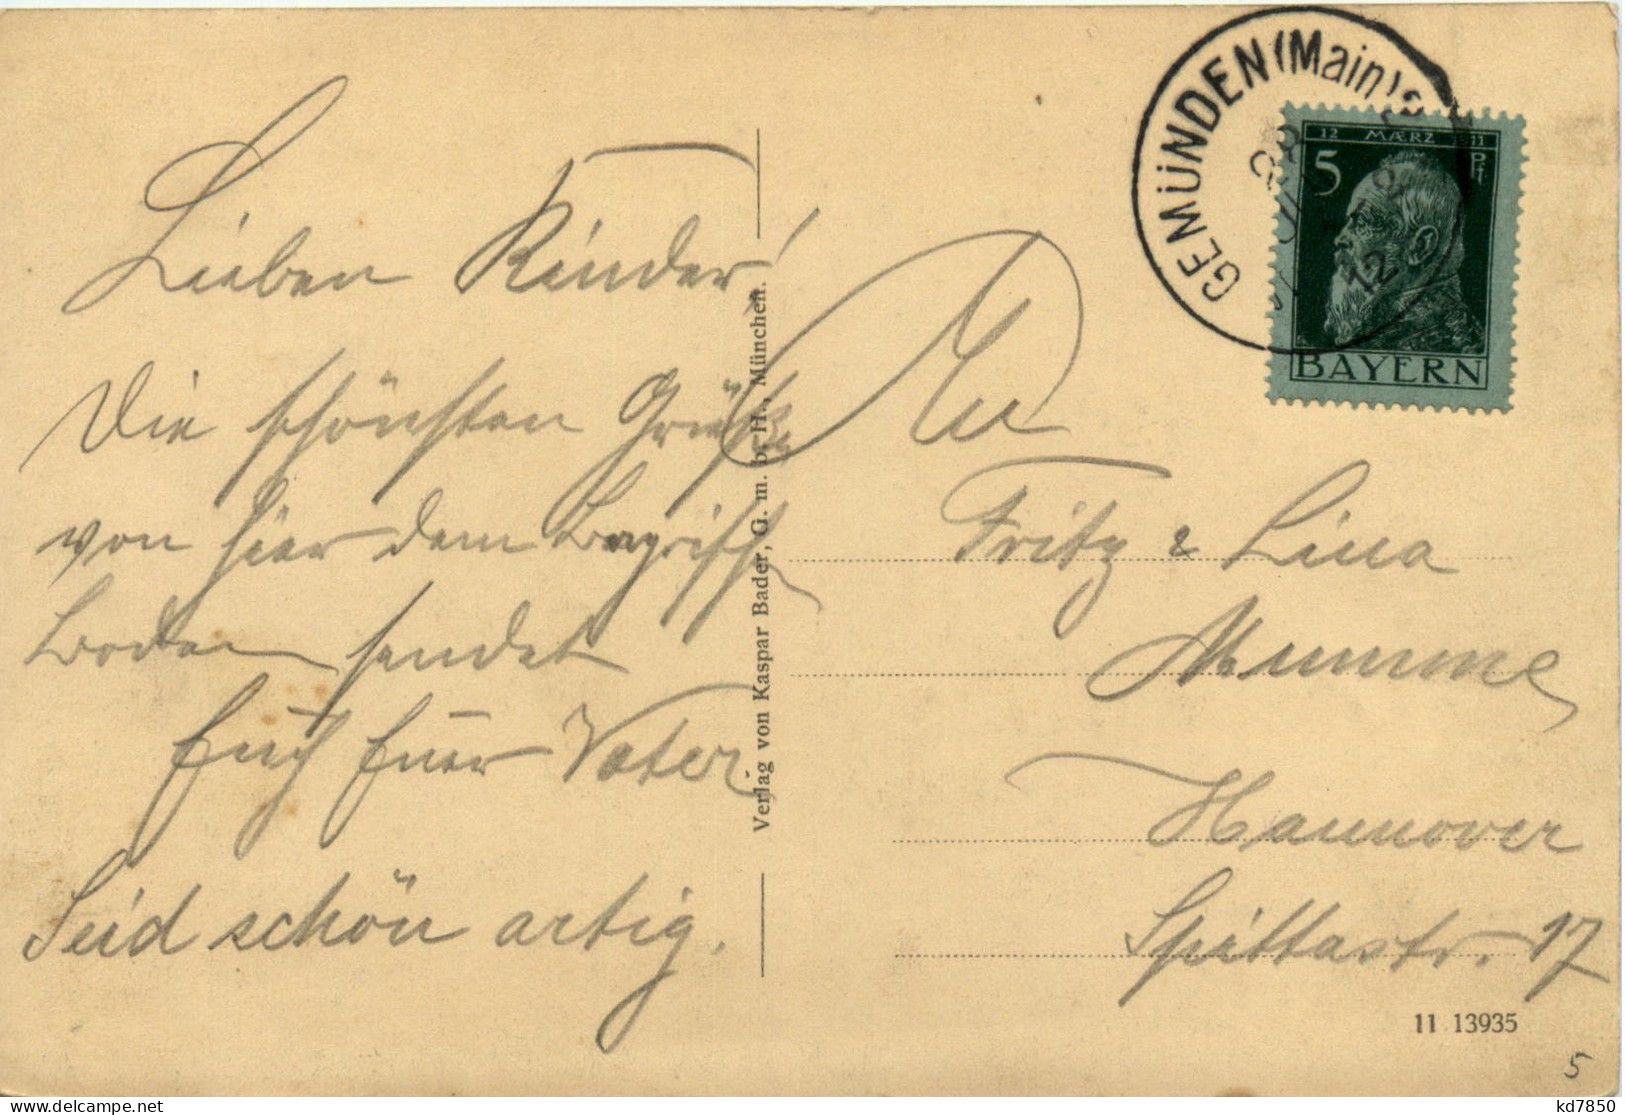 Lieben Kinder!
Die schönsten Grüße
von hier dem Bayrisch
Boden sendet
Euch Euer Vater
Seid schön artig.
Verlag von Kaspar Bader, G. m. b. H., München.
GEMÜNDEN (Main)
12
12 MÆRZ 1911
5 Pf
BAYERN
An
Fritz & Lina
Mumme
Hannover
Spittastr. 17
11 13935
5
kd7850